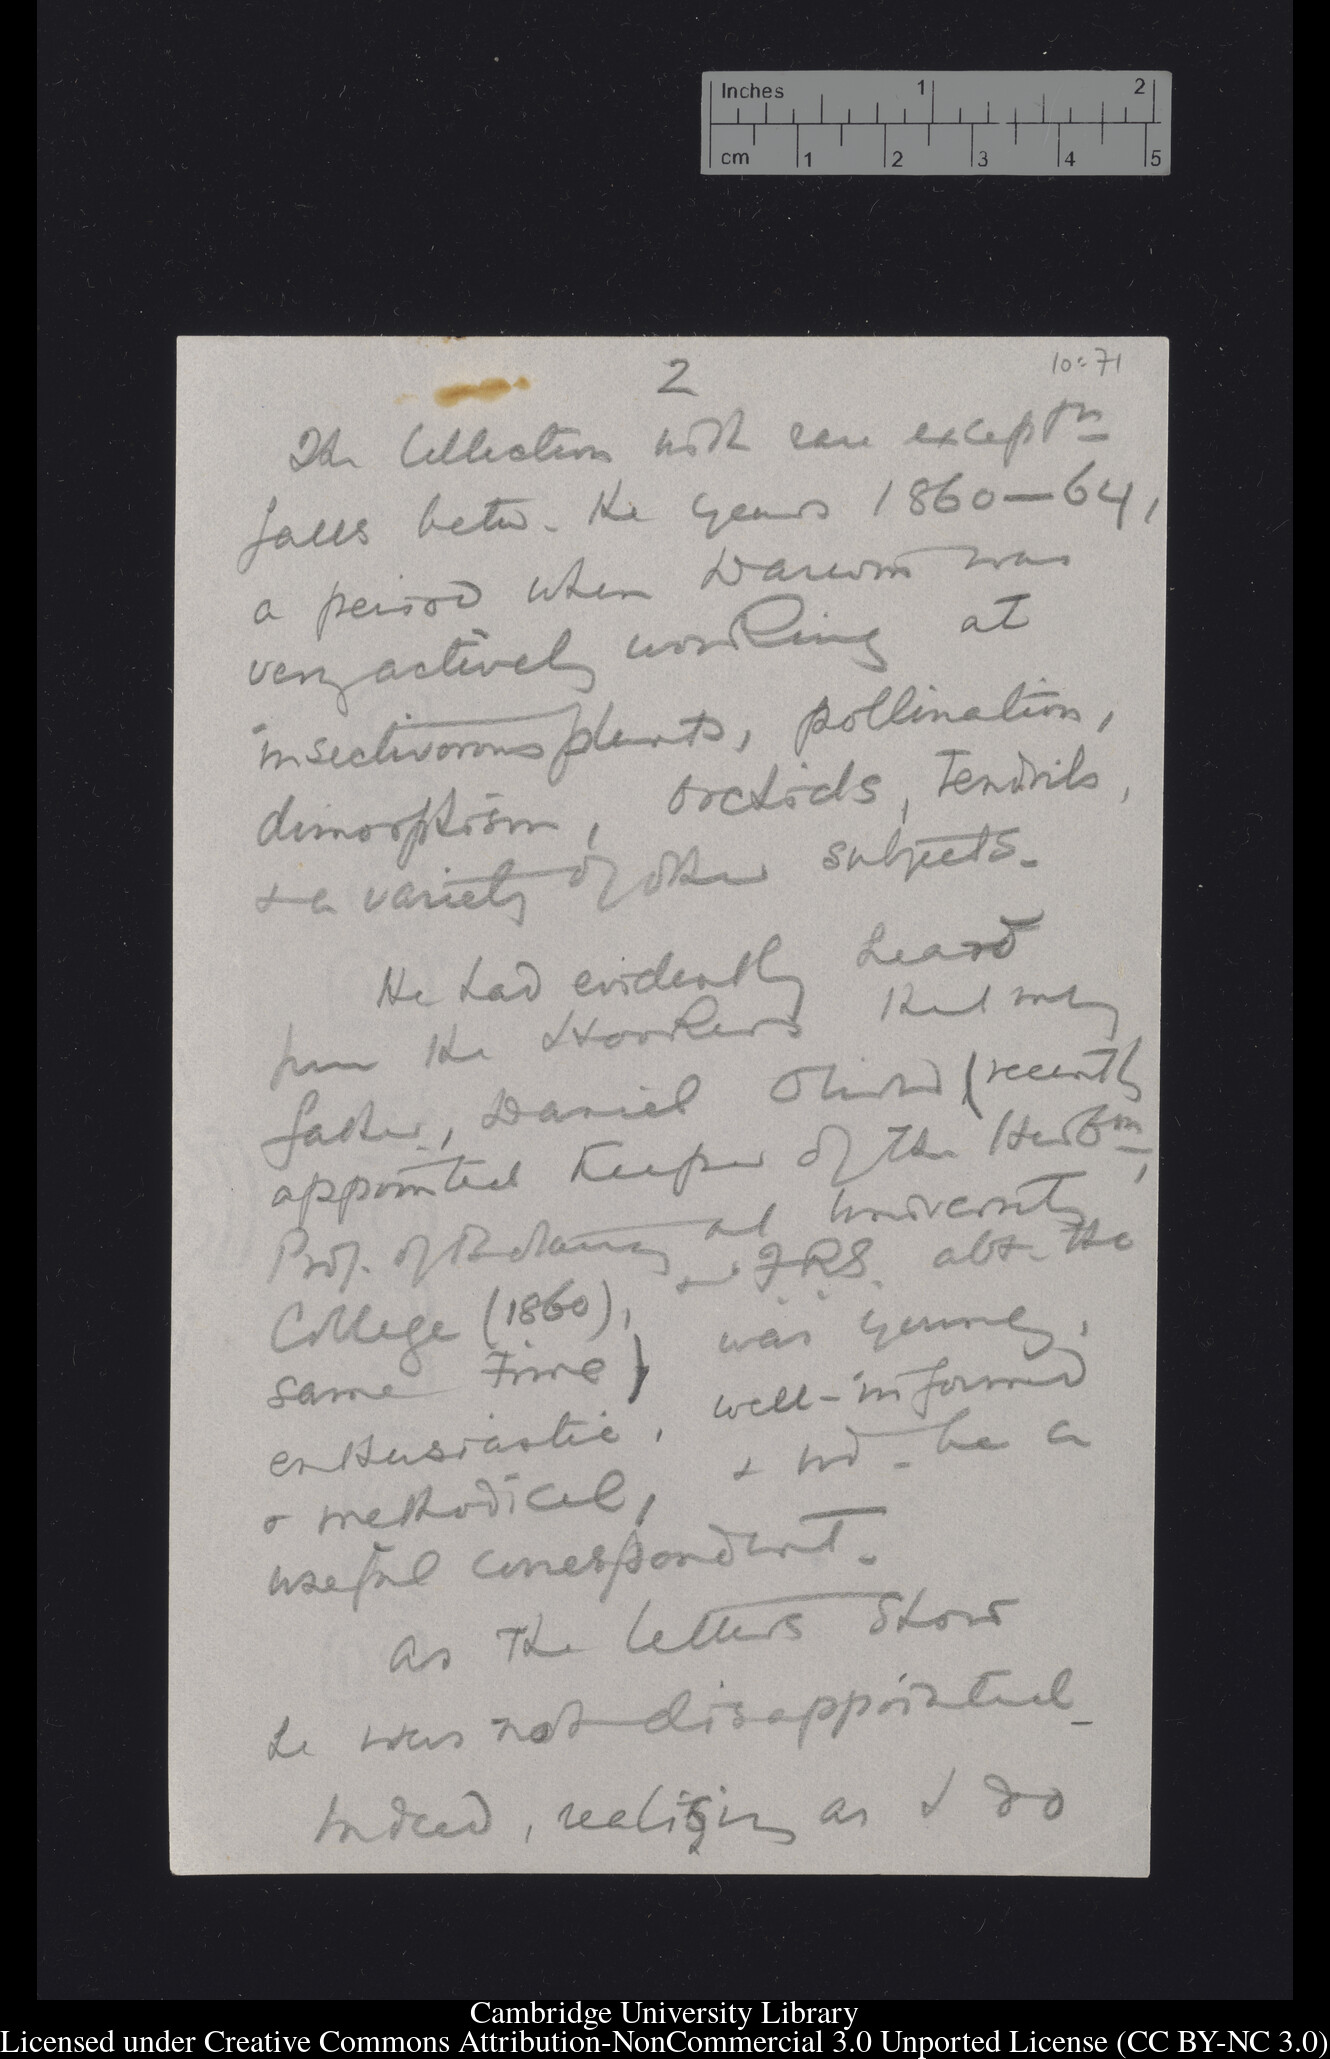 Inches 1 2
cm 1 2 3 4 5
2
10:71
The Collection with rare exceptn
falls betw. the years 1860—64,
a period when Darwin was
very actively working at
insectivorous plants, pollination,
dimorphism, orchids, Tendrils,
& a variety of other subjects.
He had evidently heard
from the Hookers that my
father, Daniel Oliver (recently
appointed Keeper of the Herbm,
Prof. of Botany at University
College (1860), & FRS. abt. the
same time) was young,
enthusiastic, well-informed
& methodical, & wd. be a
useful correspondent.
As the letters show
he was not disappointed.
Indeed, realising as I do
Cambridge University Library
Licensed under Creative Commons Attribution-NonCommercial 3.0 Unported License (CC BY-NC 3.0)